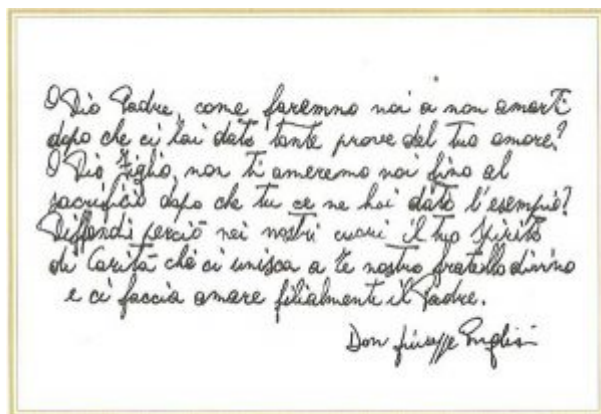 O Dio Padre, come faremmo noi a non amarTi
dopo che ci hai dato tante prove del tuo amore?
O Dio Figlio, non Ti ameremo noi fino al
sacrificio dopo che tu ce ne hai dato l'esempio?
Diffondi perciò nei nostri cuori il tuo Spirito
di Carità che ci unisca a te nostro fratello divino
e ci faccia amare filialmente il Padre.
Don Giuseppe Puglisi